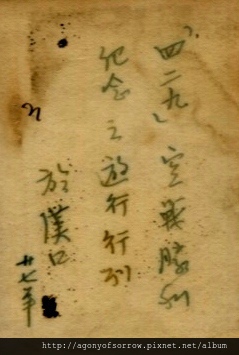 「四二九」空戰勝利
紀念之遊行行列
於漢口
廿七年
http://agonyofsorrow.pixnet.net/album